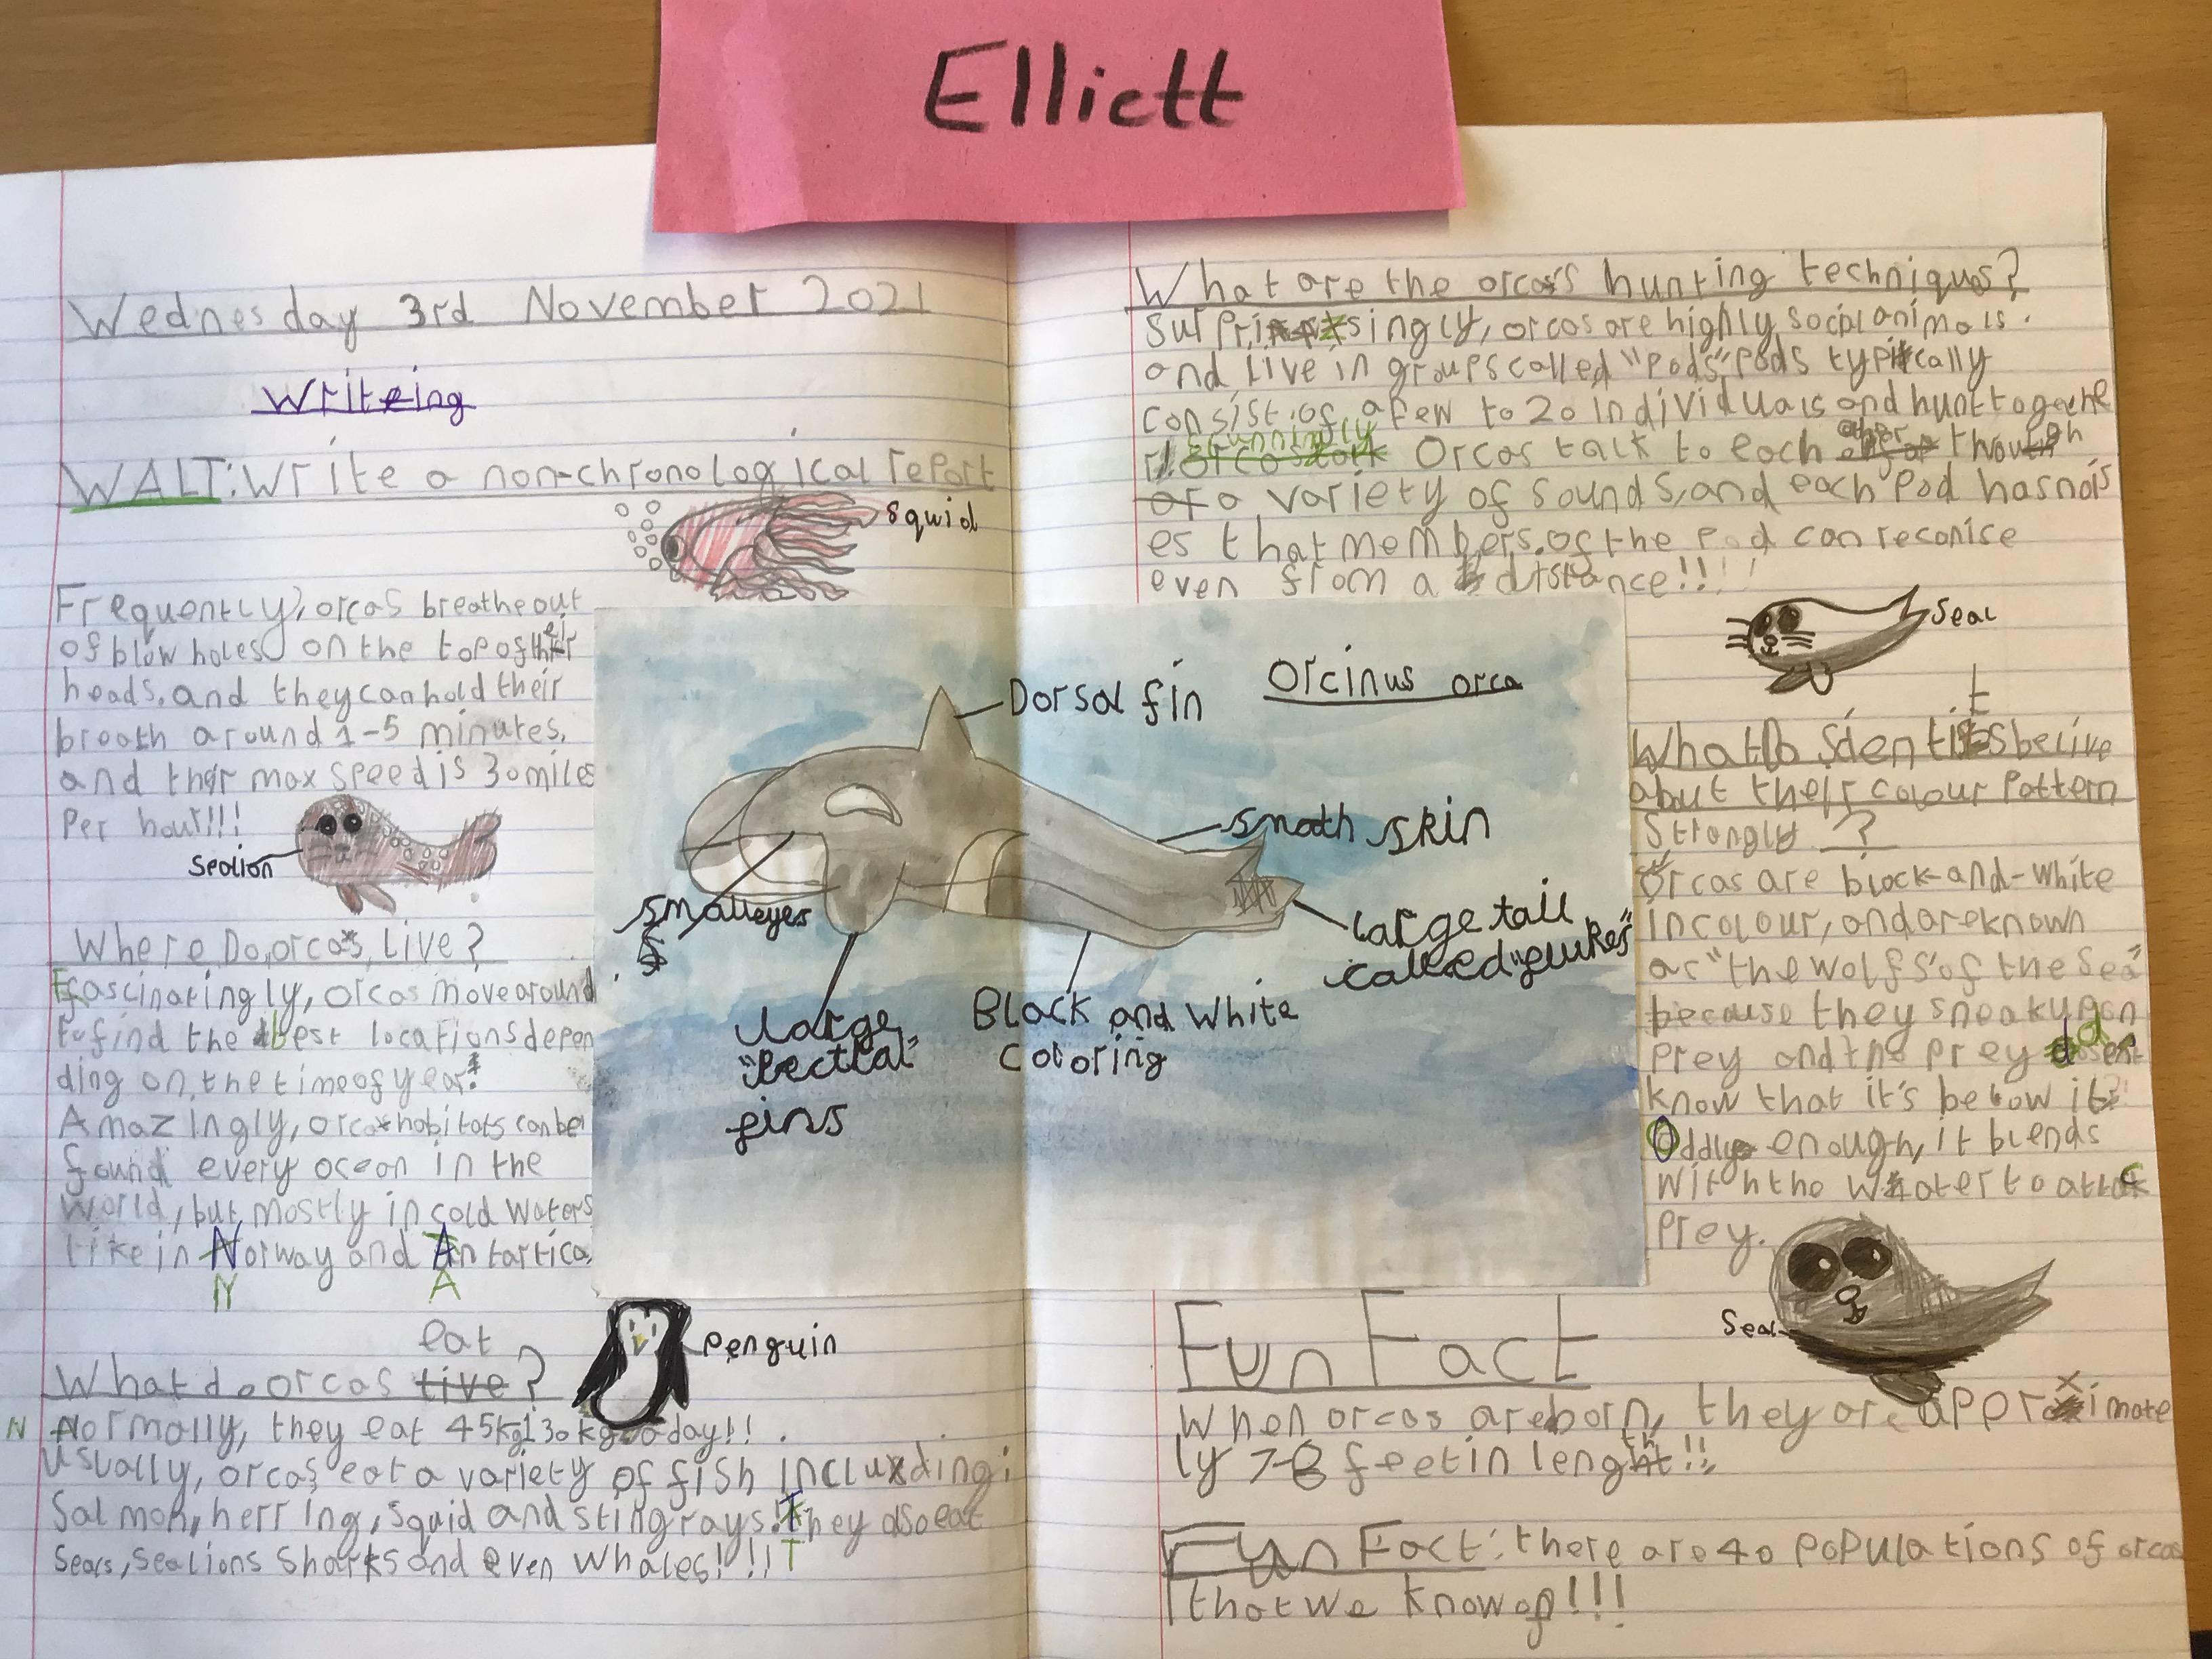 Elliott
Wednesday 3rd November 2021
Writing
WALT: Write a non-chronological report
squid
Frequently, orcas breathe out
of blow holes on the top of their
heads. and they can hold their
breath around 1-5 minutes.
and their max speed is 30 miles
Per hour!!!
Sealion
Where Do, orcas, Live?
Fascinatingly, orcas move around
to find the best locations depen
ding on, the time of year.
Amazingly, orca habitats can be
found every ocean in the
world, but mostly in cold waters
like in Norway and Antartica
N A
eat
What do orcas live?
Penguin
N Normally, they eat 45kg 130kg a day!!
Usually, orcas eat a variety of fish including:
Salmon, herring, squid and stingrays. They also eat
Sears, sealions sharks and even whales!!!!
T
Dorsal fin
Orcinus orca
smoth skin
small eyes
large tail
called "flukes"
large
"Pectral"
fins
Black and White
Coloring
What are the orcas's hunting techniques?
Surprisingly, orcas are highly social animals.
and live in groups called "Pods" Pods typically
consist of a few to 20 individuals and hunt togethe
r. Stunningly Orcas talk to each other though
a variety of sounds, and each Pod has nois
es that members. of the Pod can reconise
even from a distance!!!!
Seal
What Do Sientists belive
about their colour Pattern
Strongly ?
Orcas are black-and-white
in colour, and are known
as "the wolfs" of the sea"
because they sneak upon
Prey and the prey dosent
know that it's below it
Oddly enough, it blends
with the water to attack
Prey.
Seal
Fun Fact
When orcas are born, they are approximate
ly 7-8 feet in length!!
Fun Fact: there are 40 populations of orcas
that we know of!!!